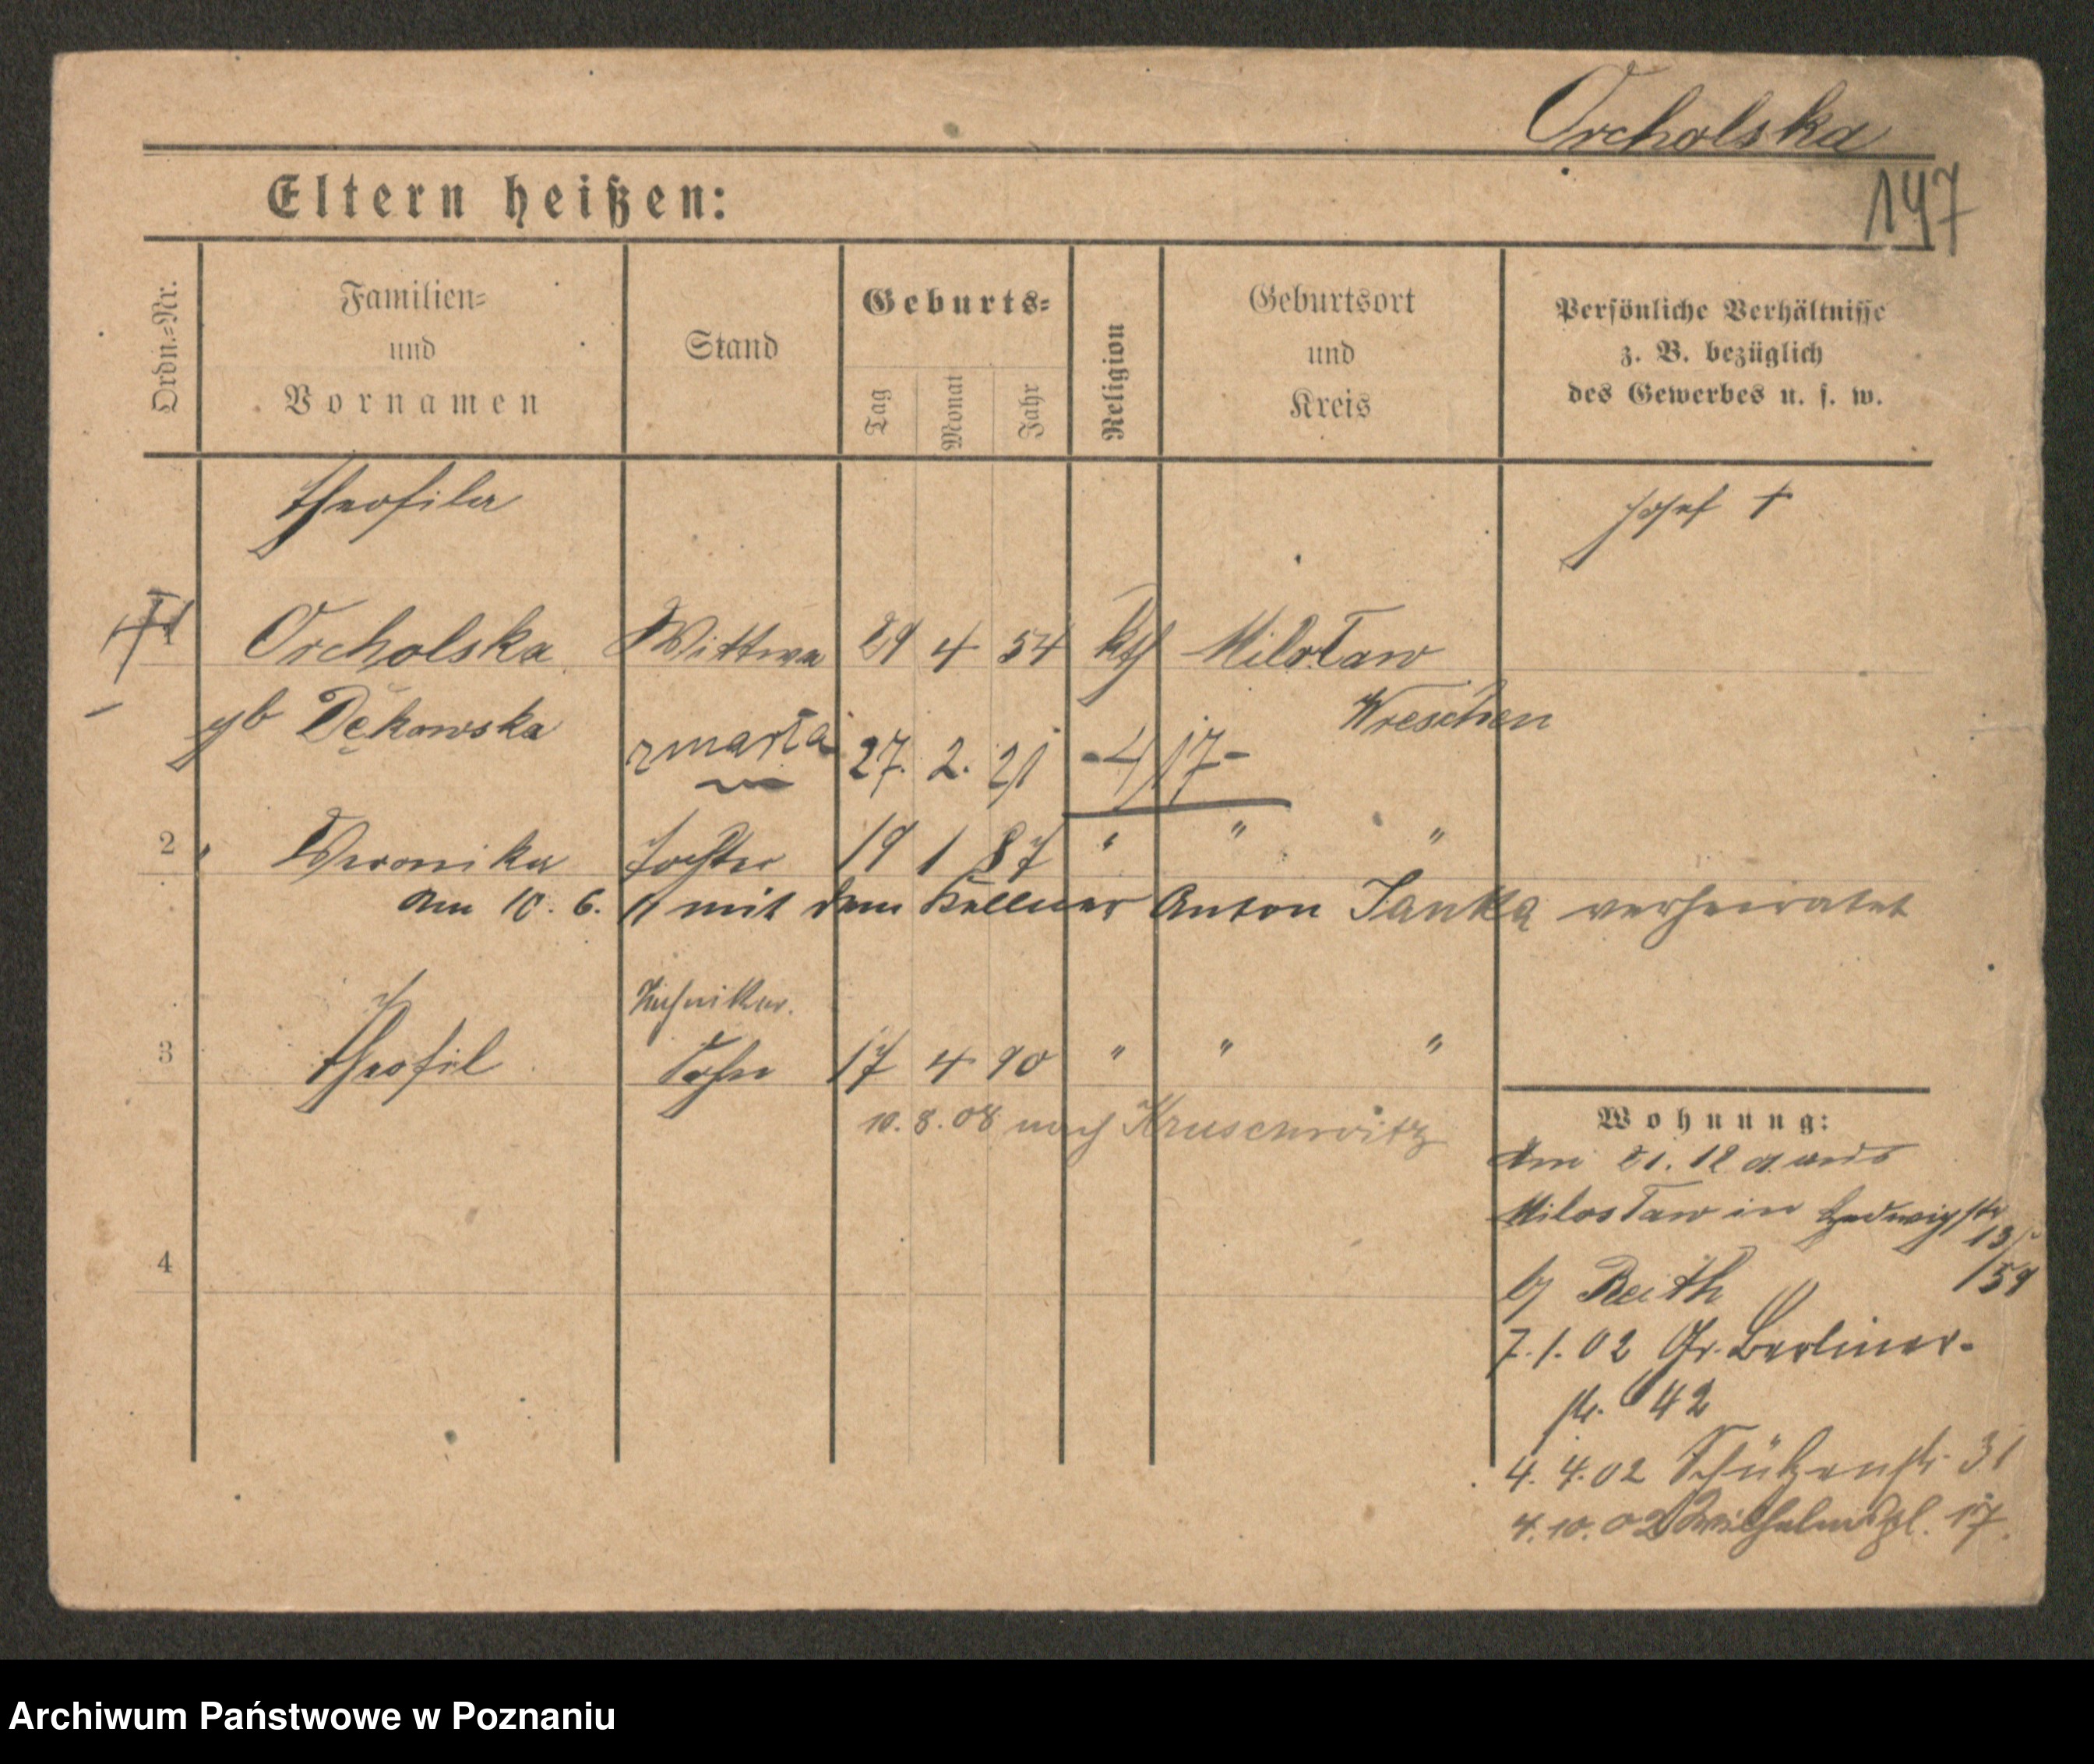 Orcholska
197
Eltern heißen:
Ordn.=Nr.
Familien=
und
Vornamen
Stand
Geburts=
Tag
Monat
Jahr
Religion
Geburtsort
und
Kreis
Persönliche Verhältnisse
z. B. bezüglich
des Gewerbes u. s. w.
Theofila
Josef †
Orcholska Wittwe 29 4 54 kth Miloslaw
gb Dękowska Wreschen
zmarła 27. 2. 21 -4/17-
2 Weronika Tochter 19 1 87 " " "
Am 10. 6. 11 mit dem Kellner Anton Janka verheiratet
Techniker.
3 Theofil Sohn 17 4 90 " " "
10. 8. 08 nach Kruschwitz
4
Wohnung:
Am 21. 12 aus
Miloslaw in Hedwigstr
13/
b/ Reith 159
7. 1. 02 Gr. Berliner-
str. 42
4. 4. 02 Schützenstr. 31
4. 10. 02 Wilhelmspl. 17.
Archiwum Państwowe w Poznaniu